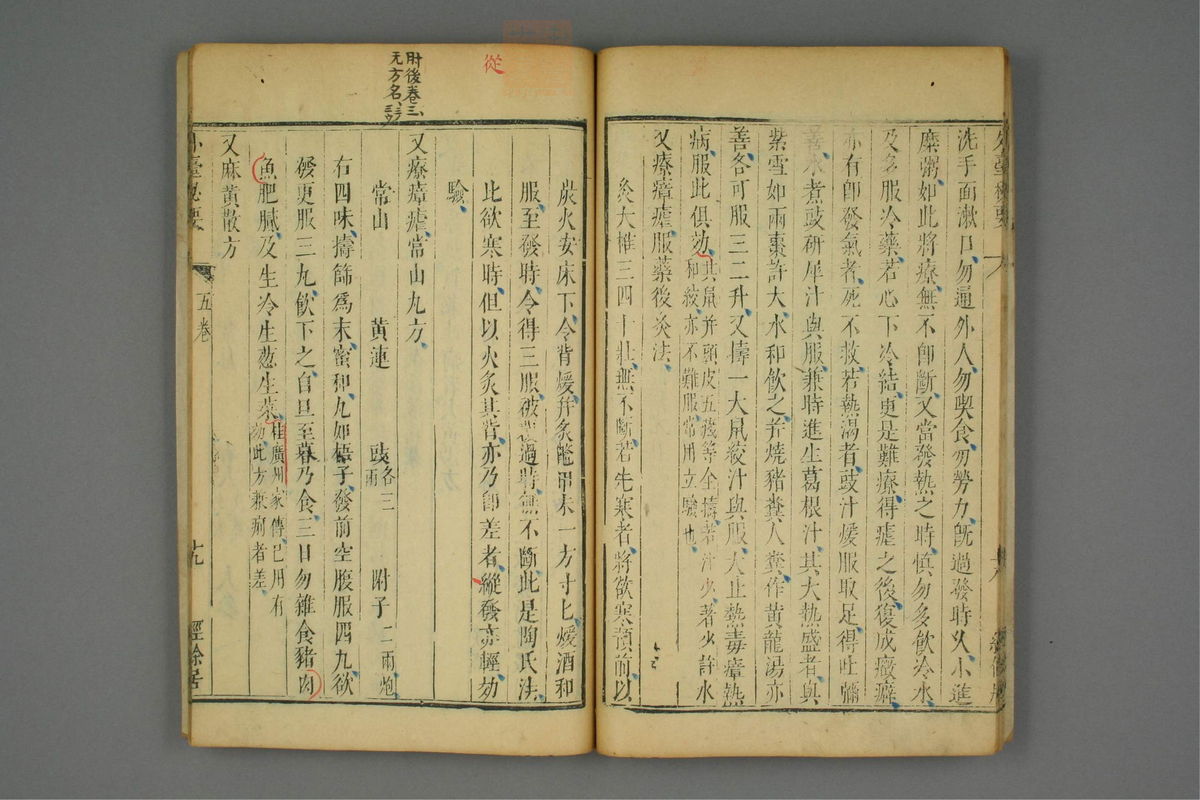 外臺秘要
洗手面漱口勿通外人勿喫食勿勞力旣過發時久小進
糜粥如此將療無不卽斷又當發熱之時慎勿多飲冷水
及多服冷藥若心下冷結更是難療得瘧之後復成癥癖
亦有卽發氣者死不救若熱渴者豉汁煖服取足得吐彌
善水煮豉研犀汁與服兼時進生葛根汁其大熱盛者與
紫雪如兩棗許大水和飲之并燒豬糞人糞作黃龍湯亦
善各可服三二升又擣一大鼠絞汁與服大止熱毒瘴熱
病服此俱効
其鼠并頭皮五藏等全擣若汁少著少許水
和絞亦不難服常用立驗也
又療瘴瘧服藥後灸法
灸大椎三四十壯無不斷若先寒者將欲寒預前以
炭火安床下令背煖并炙鼈甲末一方寸匕煖酒和
服至發時令得三服破過時無不斷此是陶氏法
此欲寒時但以火炙其背亦乃卽差者縱發亦輕効
驗
又療瘴瘧常山丸方
常山 黃連 豉各三兩 附子二兩炮
右四味擣篩爲末蜜和丸如梧子發前空腹服四丸欲
發更服三丸飲下之自旦至暮乃食三日勿雜食豬肉
魚肥膩及生冷生葱生菜
桂廣州家傳已用有
効此方兼痢者差
又麻黃散方
外臺秘要
五卷
十九
經餘居
肘後卷三
无方名
從